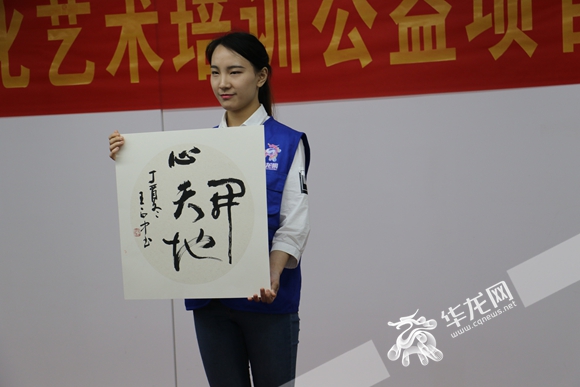 化艺术培训公益项目
開
心天地
丁酉冬
华龙网
华龙网
www.cqnews.net